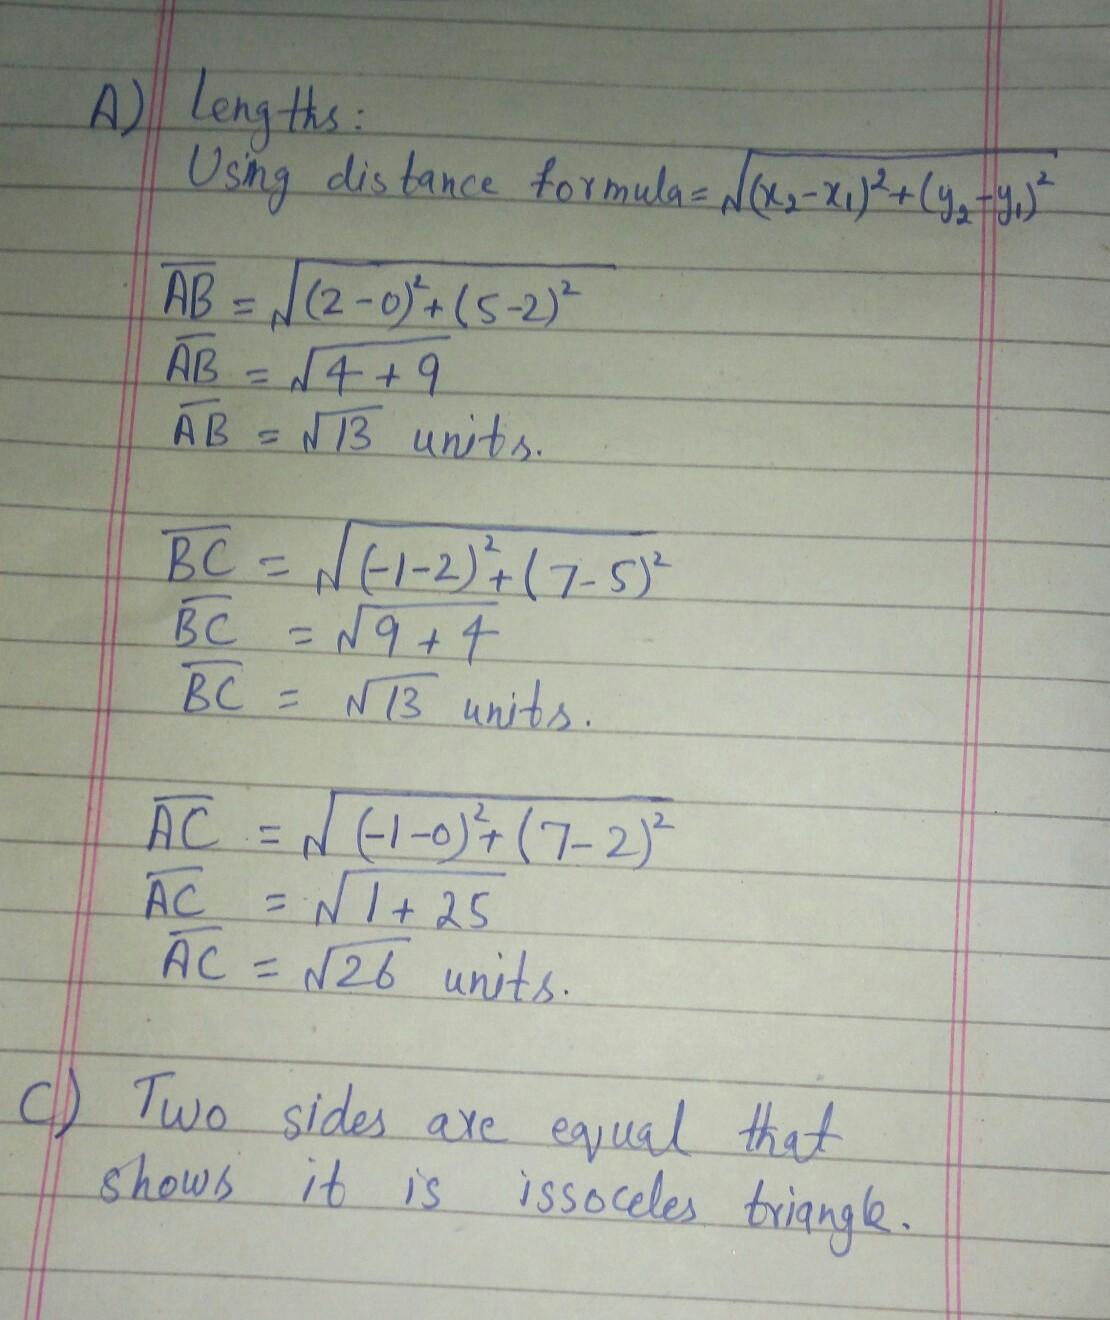 A) Lengths:
Using distance formula = √(x₂-x₁)²+(y₂-y₁)²
A̅B̅ = √(2-0)²+(5-2)²
A̅B̅ = √4+9
A̅B̅ = √13 units.
B̅C̅ = √(-1-2)²+(7-5)²
B̅C̅ = √9+4
B̅C̅ = √13 units.
A̅C̅ = √(-1-0)²+(7-2)²
A̅C̅ = √1+25
A̅C̅ = √26 units.
C) Two sides are equal that
shows it is issoceles triangle.